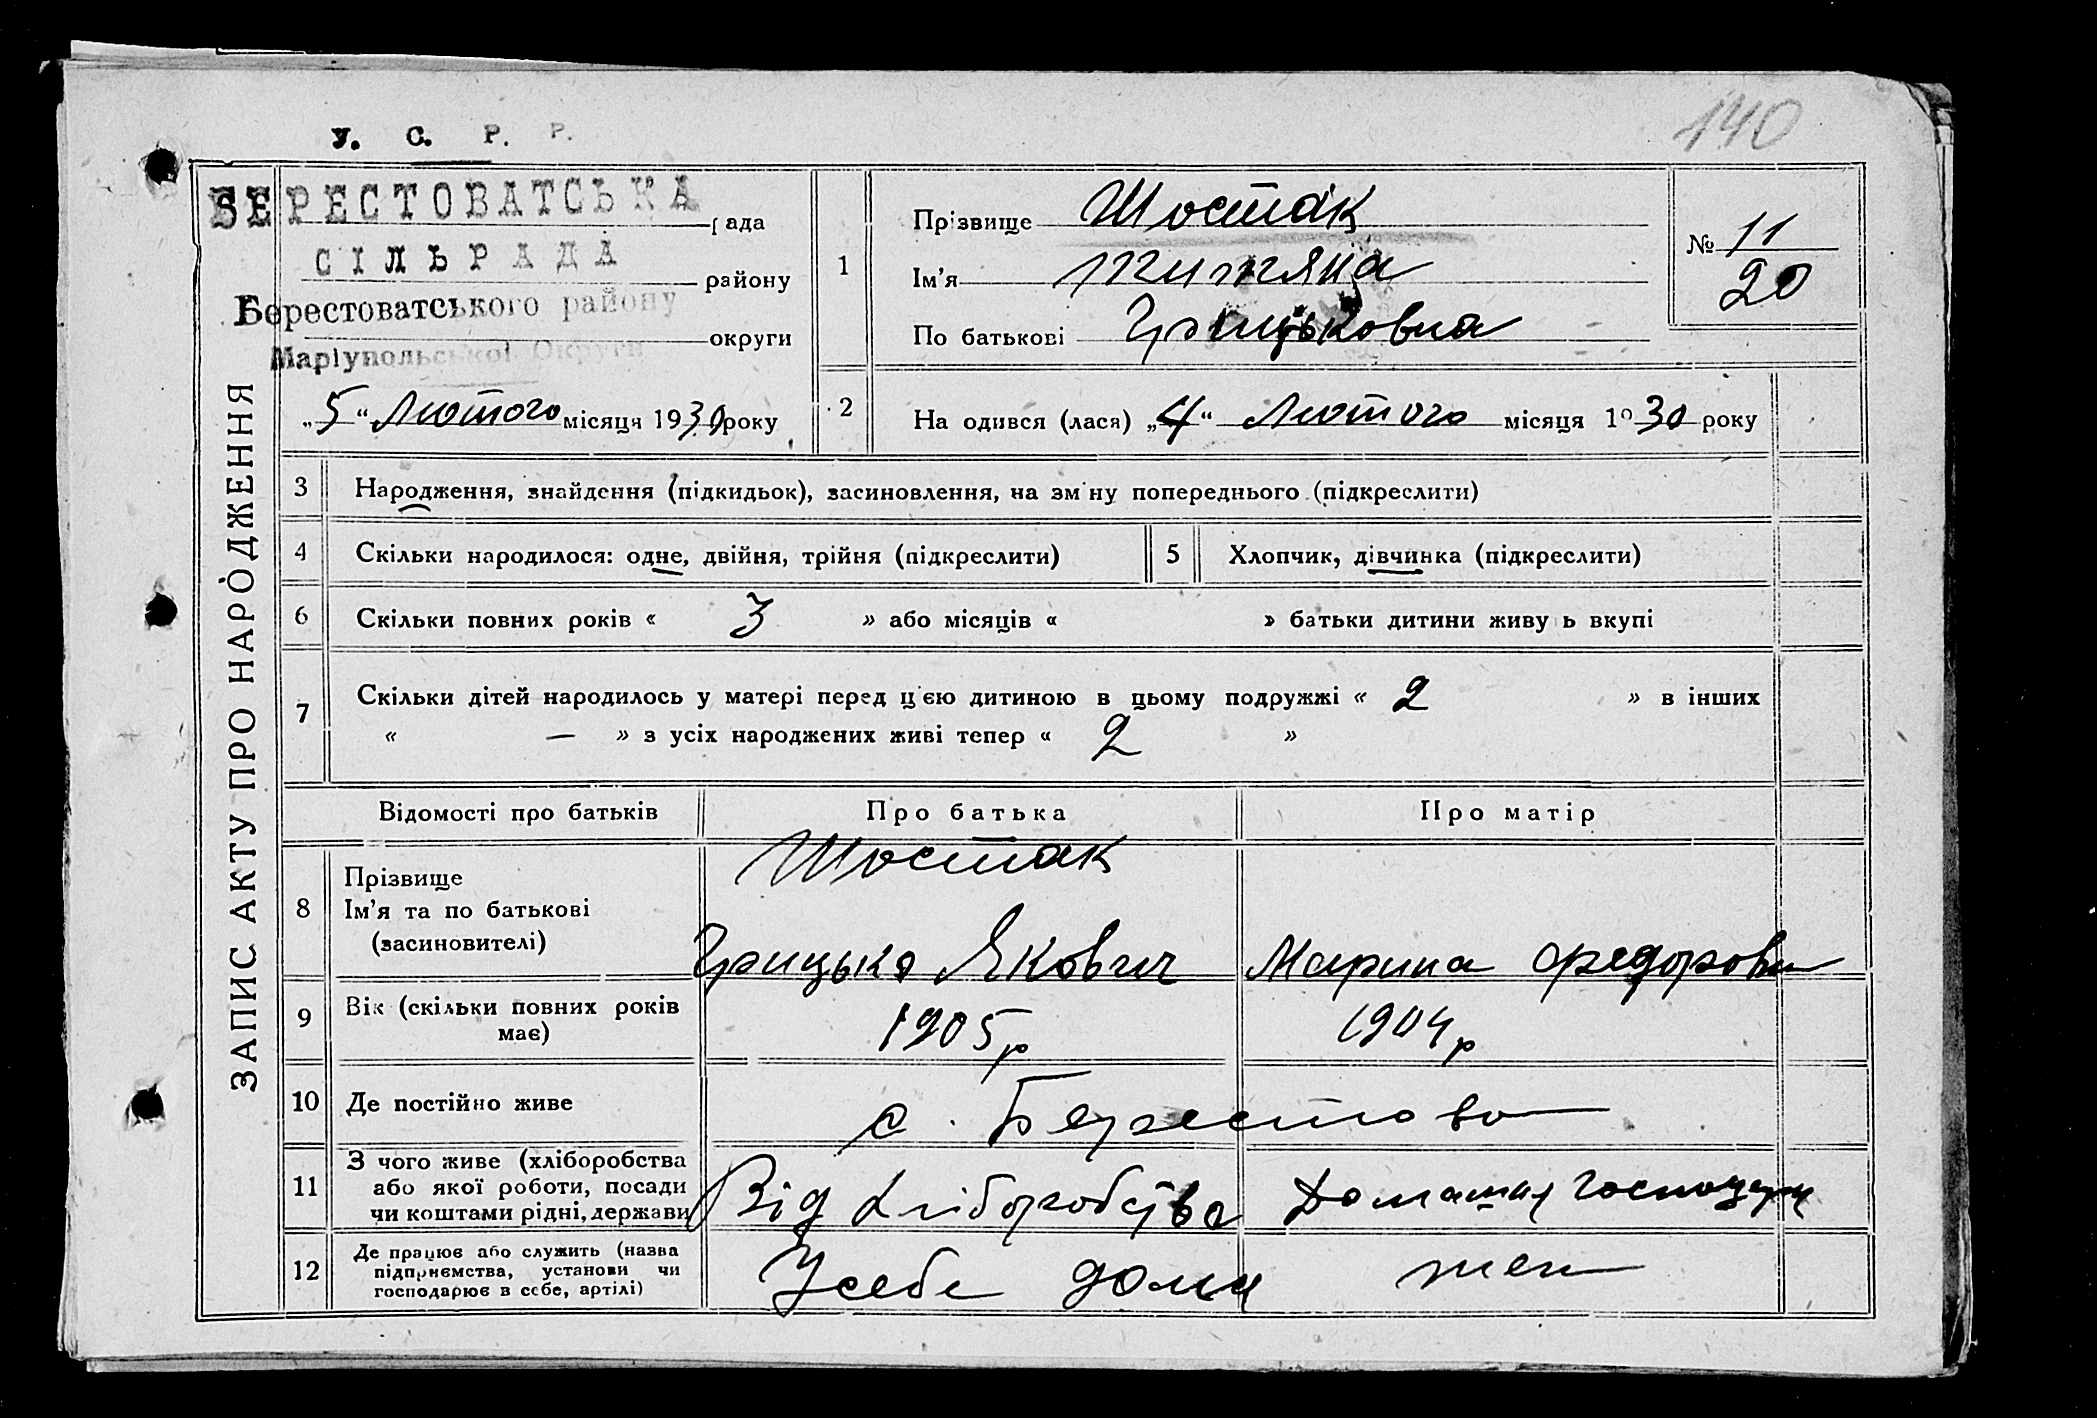 140
У. С. Р. Р.
БЕРЕСТОВАТСЬКА рада
СІЛЬРАДА району
Берестоватського району
округи
Маріупольської Округи
„5" Лютого місяця 1930 року
ЗАПИС АКТУ ПРО НАРОДЖЕННЯ
1 Прізвище Шостак
Ім'я
По батькові Грицьковна
№ 11
20
2 На одився (лася) „4" Лютого місяця 1930 року
3 Народження, знайдення (підкидьок), засиновлення, на зміну попереднього (підкреслити)
4 Скільки народилося: одне, двійня, трійня (підкреслити)
5 Хлопчик, дівчинка (підкреслити)
6 Скільки повних років « 3 » або місяців « » батьки дитини живуть вкупі
7 Скільки дітей народилось у матері перед цією дитиною в цьому подружжі « 2 » в інших
« — » з усіх народжених живі тепер « 2 »
Відомості про батьків Про батька Про матір
Шостак
8 Прізвище
Ім'я та по батькові
(засиновителі)
Грицько Якович Марина Федоровн
9 Вік (скільки повних років
має)
1905р 1904р
10 Де постійно живе с. Берестово
11 З чого живе (хліборобства
або якої роботи, посади
чи коштами рідні, держави
Від Хліборобства Домашня
12 Де працює або служить (назва
підприємства, установи чи
господарює в себе, артілі)
Усебе дома теж